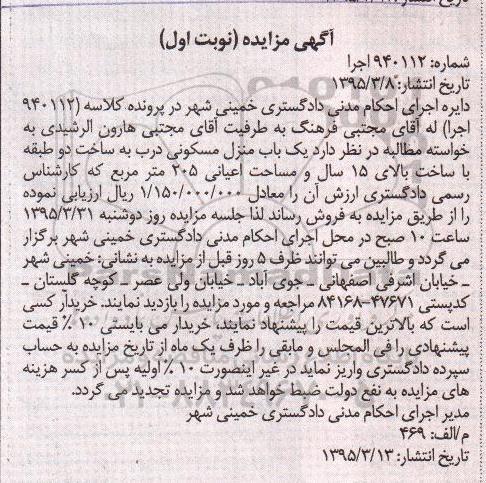 آگهی مزایده (نوبت اول)
شماره: ۹۴۰۱۱۲ اجرا
تاریخ انتشار: ۱۳۹۵/۳/۸
دایره اجرای احکام مدنی دادگستری خمینی شهر در پرونده کلاسه (۹۴۰۱۱۲
اجرا) له آقای مجتبی فرهنگ به طرفیت آقای مجتبی هارون الرشیدی به
خواسته مطالبه در نظر دارد یک باب منزل مسکونی درب به ساخت دو طبقه
با ساخت بالای ۱۵ سال و مساحت اعیانی ۲۰۵ متر مربع که کارشناس
رسمی دادگستری ارزش آن را معادل ۱/۱۵۰/۰۰۰/۰۰۰ ریال ارزیابی نموده
را از طریق مزایده به فروش رساند لذا جلسه مزایده روز دوشنبه ۱۳۹۵/۳/۳۱
ساعت ۱۰ صبح در محل اجرای احکام مدنی دادگستری خمینی شهر برگزار
می گردد و طالبین می توانند ظرف ۵ روز قبل از مزایده به نشانی: خمینی شهر
ـ خیابان اشرفی اصفهانی ـ جوی آباد ـ خیابان ولی عصر ـ کوچه گلستان ـ
کدپستی ۴۷۶۷۱-۸۴۱۶۸ مراجعه و مورد مزایده را بازدید نمایند. خریدار کسی
است که بالاترین قیمت را پیشنهاد نمایند، خریدار می بایستی ۱۰٪ قیمت
پیشنهادی را فی المجلس و مابقی را ظرف یک ماه از تاریخ مزایده به حساب
سپرده دادگستری واریز نماید در غیر اینصورت ۱۰٪ اولیه پس از کسر هزینه
های مزایده به نفع دولت ضبط خواهد شد و مزایده تجدید می گردد.
مدیر اجرای احکام مدنی دادگستری خمینی شهر
م/الف: ۴۶۹
تاریخ انتشار: ۱۳۹۵/۳/۱۳